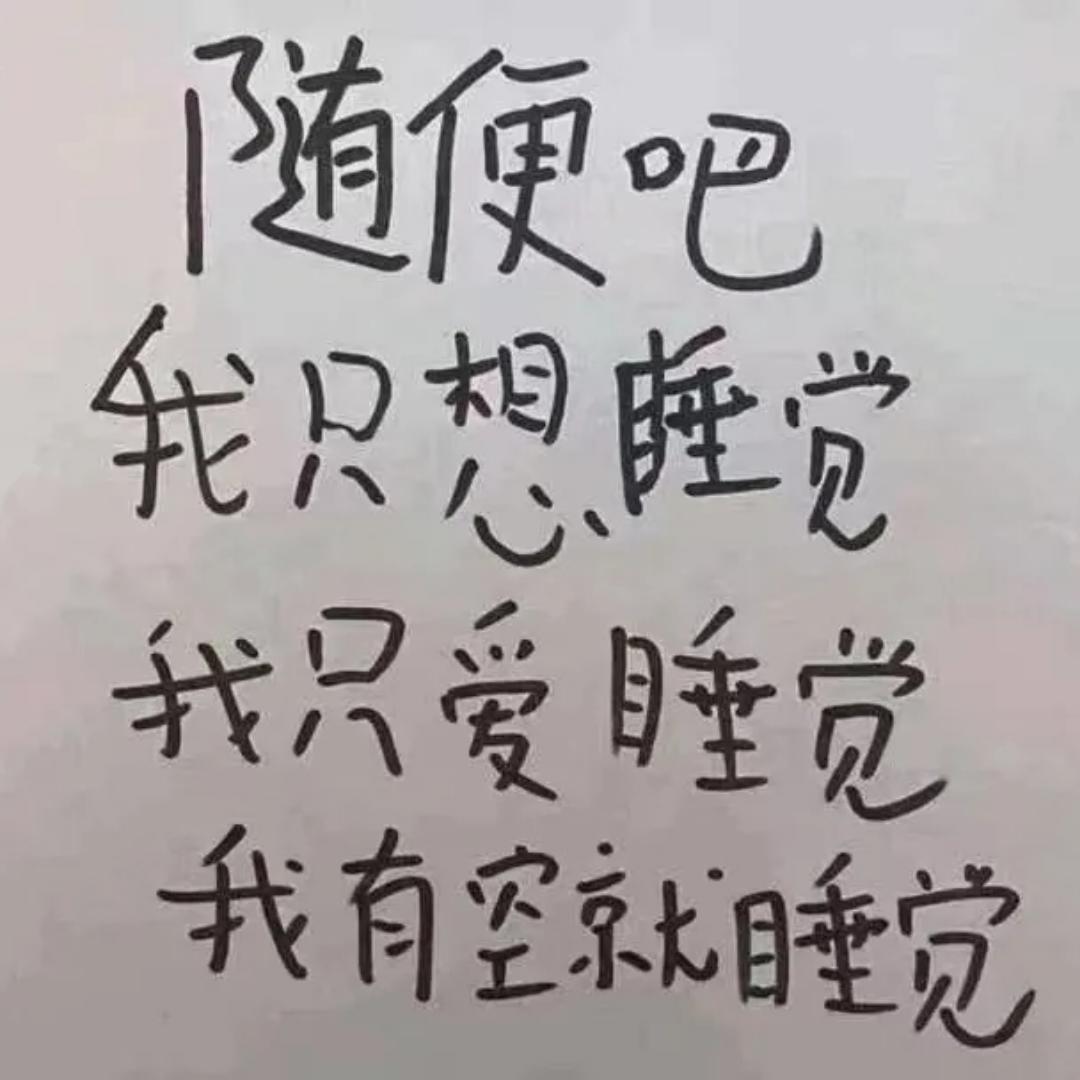 随便吧
我只想睡觉
我只爱睡觉
我有空就睡觉